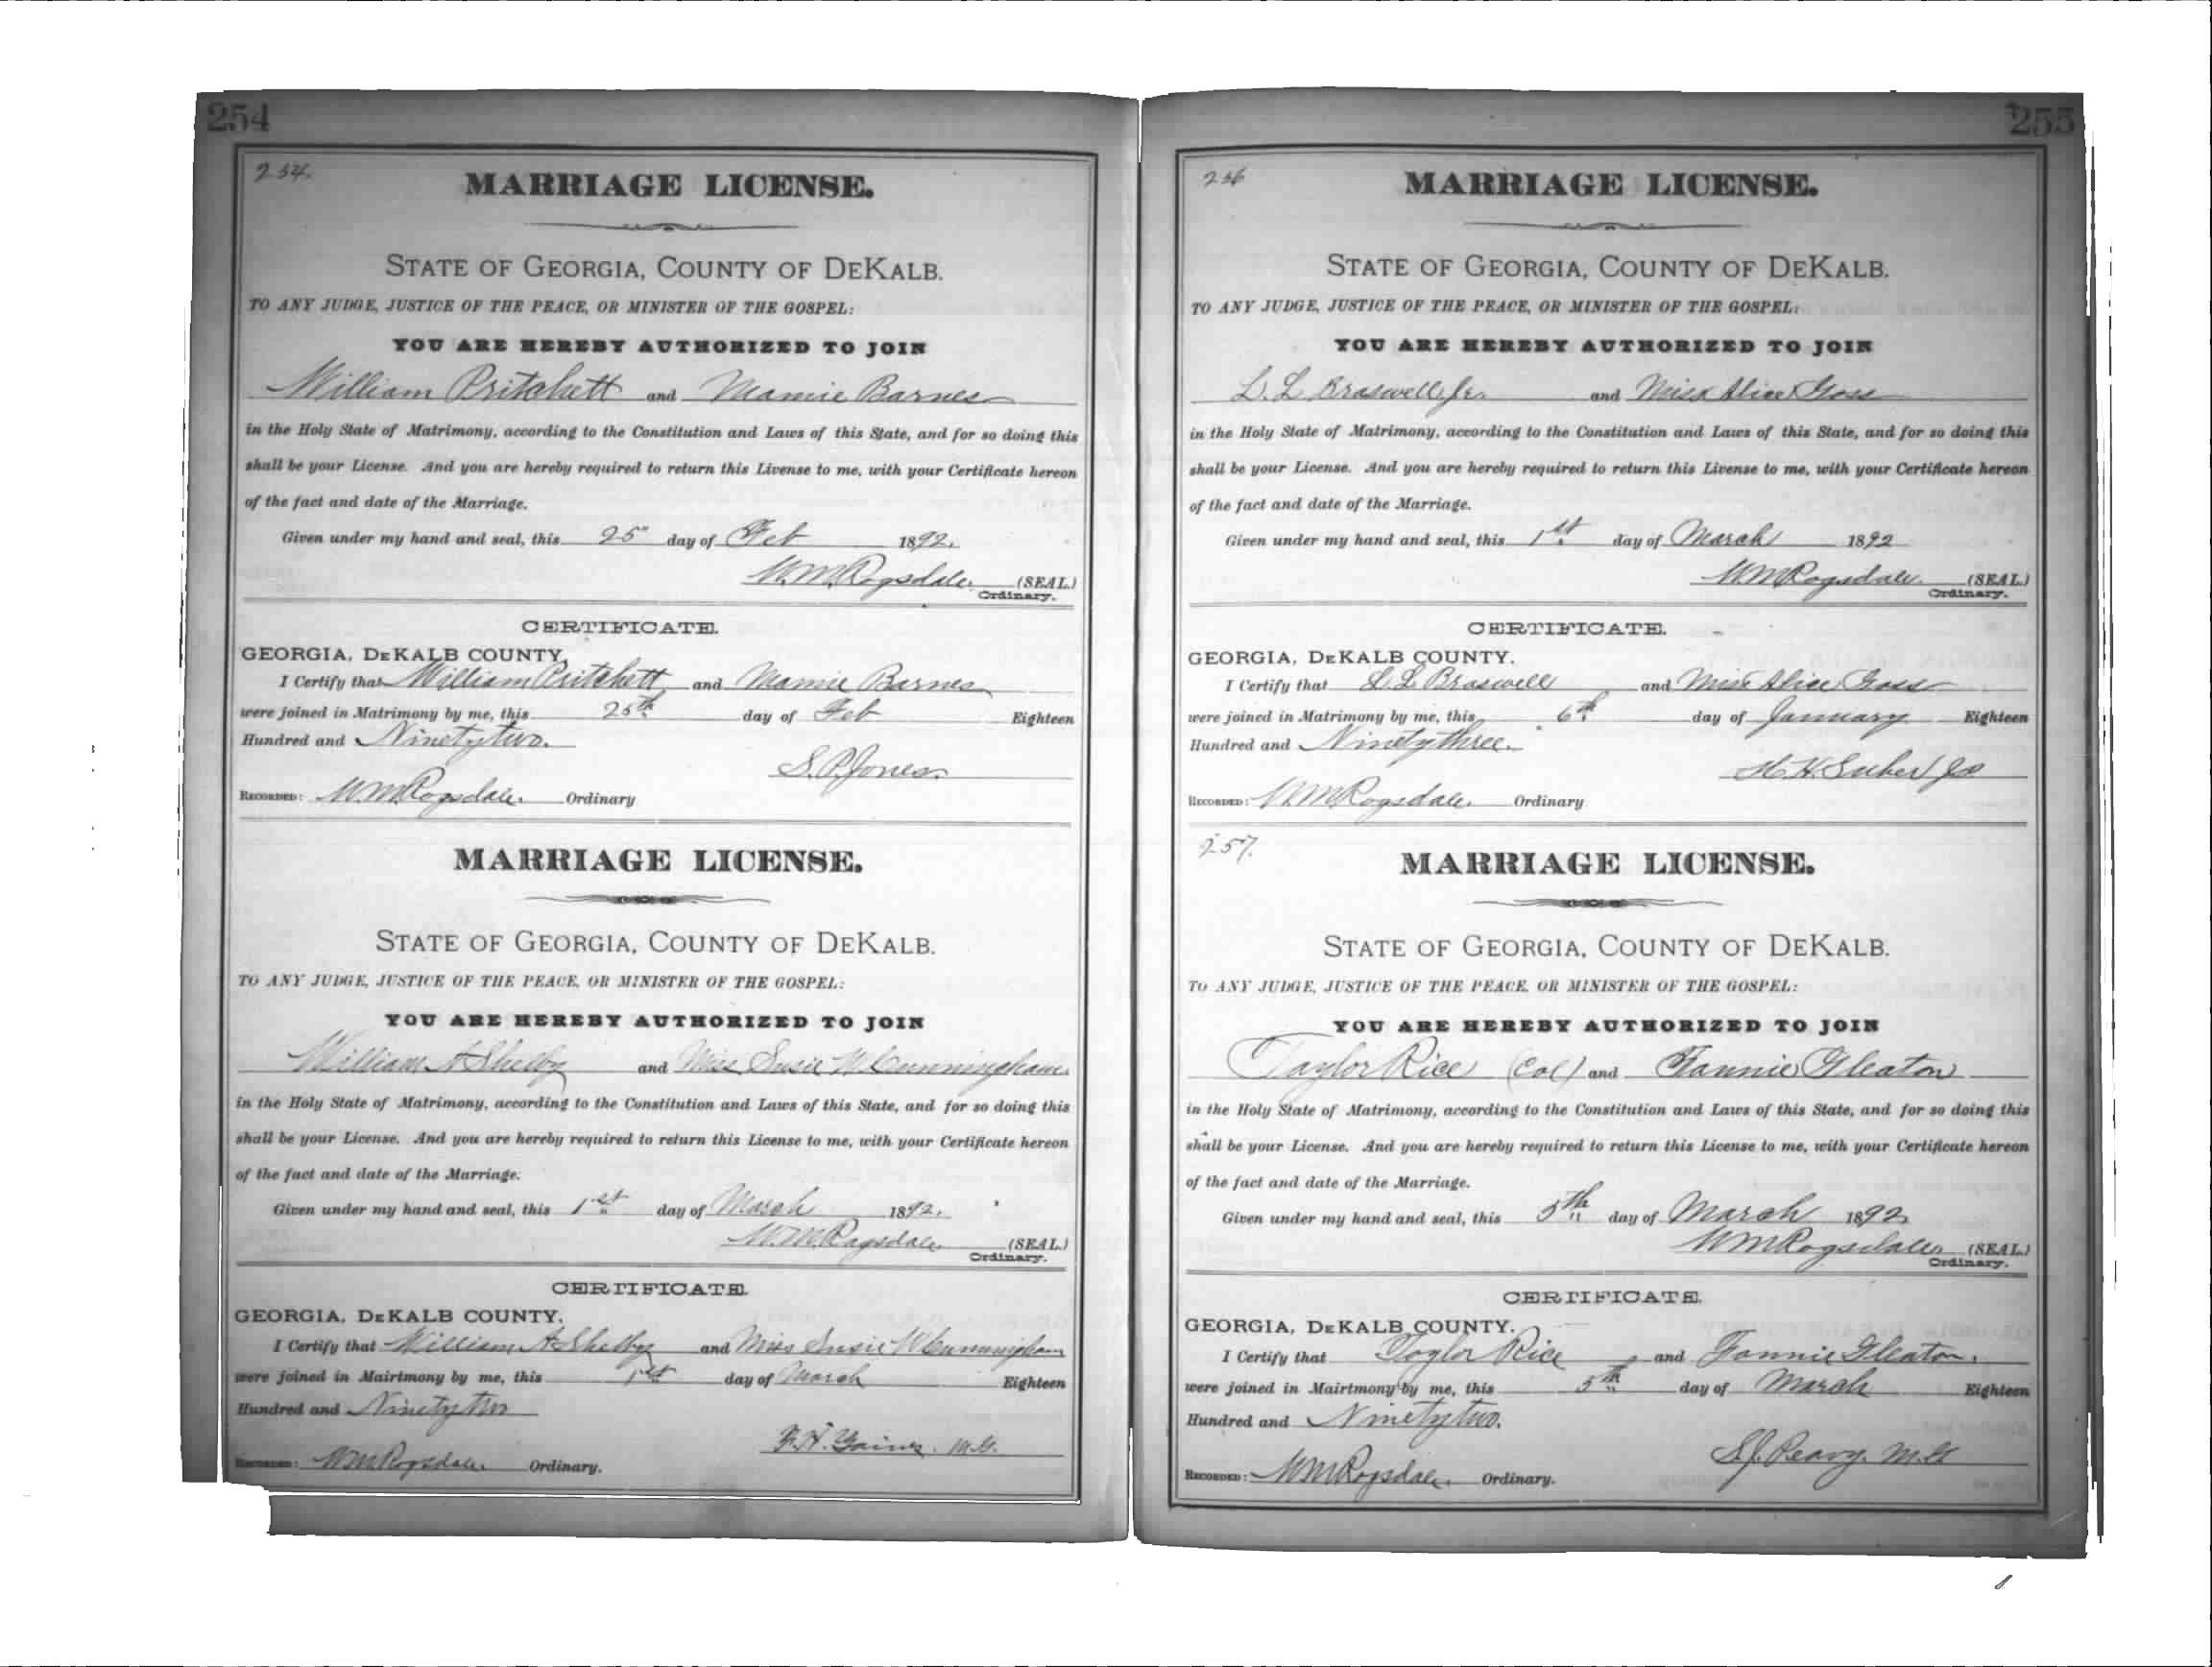 254
254.
MARRIAGE LICENSE.
STATE OF GEORGIA, COUNTY OF DEKALB.
TO ANY JUDGE, JUSTICE OF THE PEACE, OR MINISTER OF THE GOSPEL:
YOU ARE HEREBY AUTHORIZED TO JOIN
William Pritchett and Mamie Barnes
in the Holy State of Matrimony, according to the Constitution and Laws of this State, and for so doing this
shall be your License. And you are hereby required to return this License to me, with your Certificate hereon
of the fact and date of the Marriage.
Given under my hand and seal, this 25" day of Feb 1892.
W.M. Ragsdale. (SEAL.)
Ordinary.
CERTIFICATE.
GEORGIA, DEKALB COUNTY.
I Certify that William Pritchett and Mamie Barnes
were joined in Matrimony by me, this 25th day of Feb Eighteen
Hundred and Ninety two.
S. P. Jones.
RECORDED: W.M. Ragsdale. Ordinary
MARRIAGE LICENSE.
STATE OF GEORGIA, COUNTY OF DEKALB.
TO ANY JUDGE, JUSTICE OF THE PEACE, OR MINISTER OF THE GOSPEL:
YOU ARE HEREBY AUTHORIZED TO JOIN
William A Shelby and Miss Susie W Cunningham
in the Holy State of Matrimony, according to the Constitution and Laws of this State, and for so doing this
shall be your License. And you are hereby required to return this License to me, with your Certificate hereon
of the fact and date of the Marriage.
Given under my hand and seal, this 1st day of March 1892.
W.M. Ragsdale (SEAL.)
Ordinary.
CERTIFICATE.
GEORGIA, DEKALB COUNTY.
I Certify that William A Shelby and Miss Susie W Cunningham
were joined in Mairtmony by me, this 1st day of March Eighteen
Hundred and Ninety two
F. H. Gaines. M.G.
RECORDED: W M Ragsdale. Ordinary.
255
256
MARRIAGE LICENSE.
STATE OF GEORGIA, COUNTY OF DEKALB.
TO ANY JUDGE, JUSTICE OF THE PEACE, OR MINISTER OF THE GOSPEL:
YOU ARE HEREBY AUTHORIZED TO JOIN
L. L. Braswell Jr. and Miss Alice Goss
in the Holy State of Matrimony, according to the Constitution and Laws of this State, and for so doing this
shall be your License. And you are hereby required to return this License to me, with your Certificate hereon
of the fact and date of the Marriage.
Given under my hand and seal, this 1st day of March 1892
W M Ragsdale. (SEAL.)
Ordinary.
CERTIFICATE.
GEORGIA, DEKALB COUNTY.
I Certify that L L Braswell and Miss Alice Goss
were joined in Matrimony by me, this 6th day of January Eighteen
Hundred and Ninety three.
H. H.
RECORDED: W M Ragsdale. Ordinary
257.
MARRIAGE LICENSE.
STATE OF GEORGIA, COUNTY OF DEKALB.
TO ANY JUDGE, JUSTICE OF THE PEACE, OR MINISTER OF THE GOSPEL:
YOU ARE HEREBY AUTHORIZED TO JOIN
Taylor Rice (Col) and Fannie Gleaton
in the Holy State of Matrimony, according to the Constitution and Laws of this State, and for so doing this
shall be your License. And you are hereby required to return this License to me, with your Certificate hereon
of the fact and date of the Marriage.
Given under my hand and seal, this 5th day of March 1892
W M Ragsdale (SEAL.)
Ordinary.
CERTIFICATE.
GEORGIA, DEKALB COUNTY.
I Certify that Taylor Rice and Fannie Gleaton.
were joined in Mairtmony by me, this 5th day of March Eighteen
Hundred and Ninety two.
S. J. Peavy. M.G
RECORDED: W M Ragsdale. Ordinary.